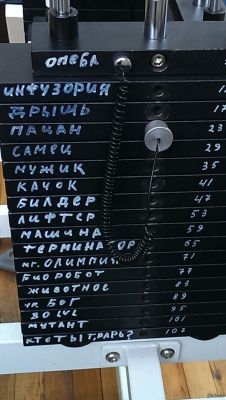 ОПЕВЛ
ИНФУЗОРИЯ
ДРЫЩЬ 17
ПАЦАН 23
САМЕЦ 29
МУЖИК 35
КАЧОК 41
БИЛДЕР 47
ЛИФТЕР 53
МАШИНА 59
ТЕРМИНАТОР 65
МГ. ОЛИМПИЯ 71
БИОРОБОТ 77
ЖИВОТНОЕ 83
УР. БОГ 89
80 LVL 95
МУТАНТ 101
КТО ТЫ ТВАРЬ? 107